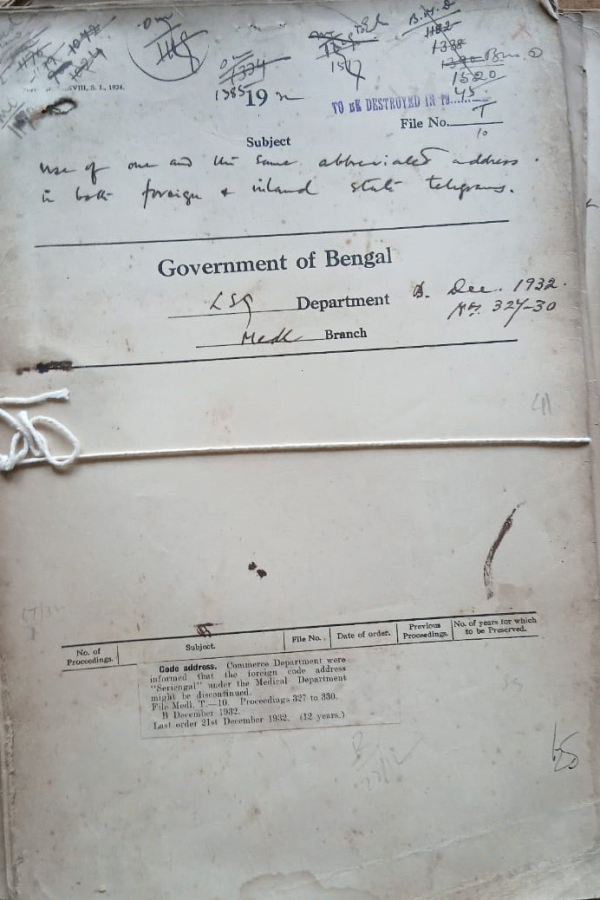 1182
1388
1334
1520
1385
19
TO BE DESTROYED IN 19......45
File No. T
10
Subject
use of one and the same abbreviated address
in both foreign & inland state telegrams.
Government of Bengal
LSG Department B. Dec. 1932.
Nos. 327-30
Medl. Branch
No. of Proceedings. Subject. File No. Date of order. Previous Proceedings. No. of years for which to be Preserved.
Code address. Commerce Department were
informed that the foreign code address
"Seriengal" under the Medical Department
might be discontinued.
File Medl. T.—10. Proceedings 327 to 330.
B December 1932.
Last order 21st December 1932. (12 years.)